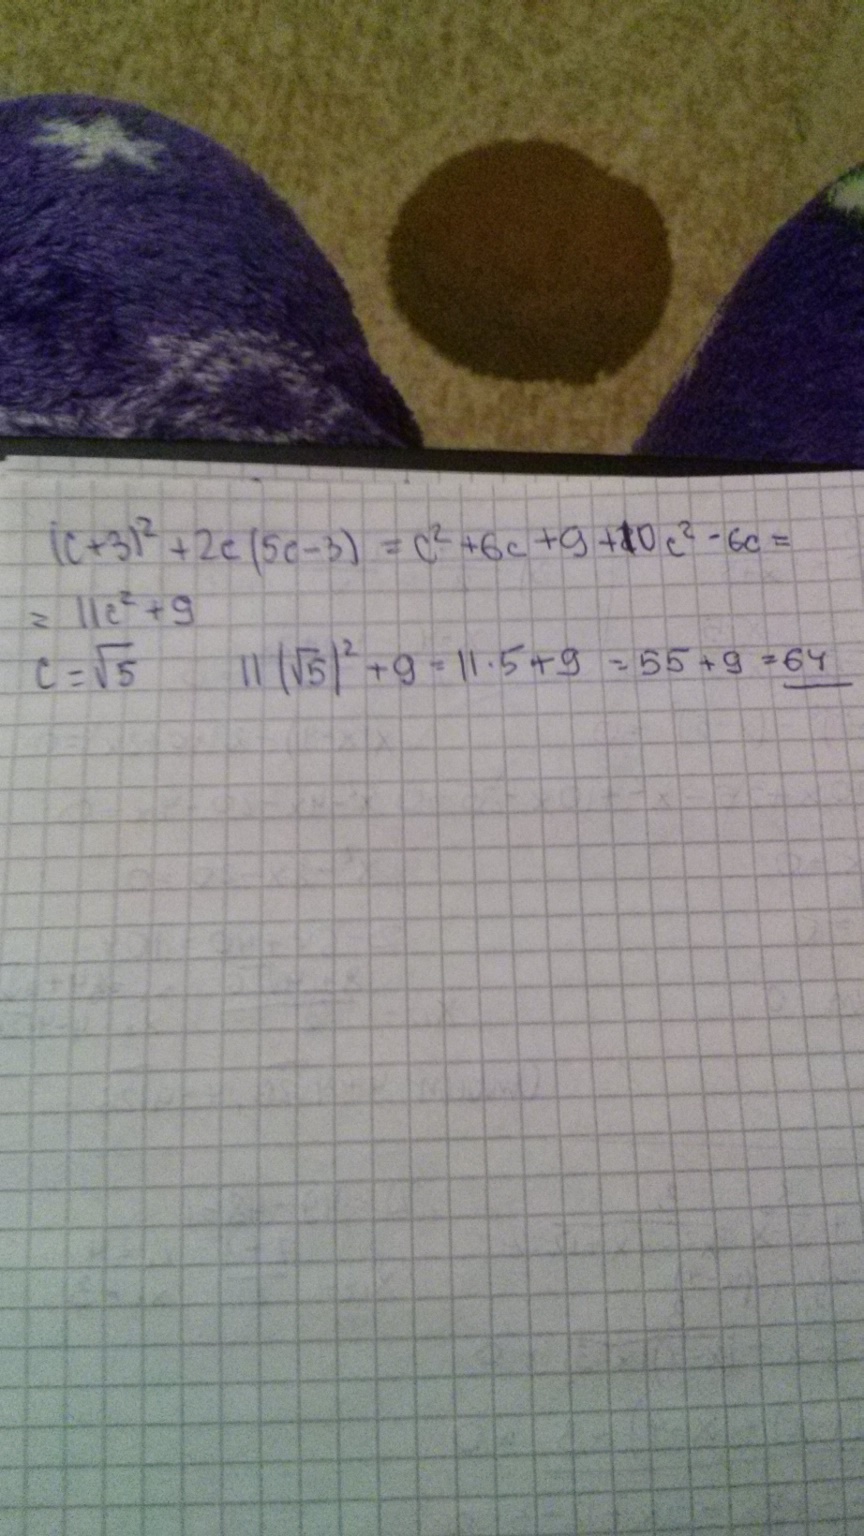 (c+3)² + 2c (5c-3) = c² + 6c + 9 + 10c² - 6c =
= 11c² + 9
c = √5 11 (√5)² + 9 = 11·5 + 9 = 55 + 9 = 64